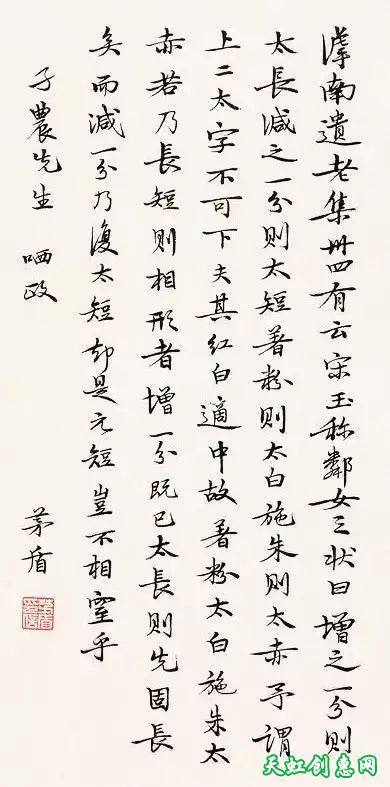 滹南遺老集卅四有云宋玉称鄰女之状曰增之一分则
太長減之一分则太短著粉则太白施朱则太赤予謂
上二太字不可下夫其红白適中故著粉太白施朱太
赤若乃長短则相形者增一分既已太長则先固長
矣而減一分乃復太短却是元短豈不相窒乎
子農先生 哂政
茅盾
天虹创意网